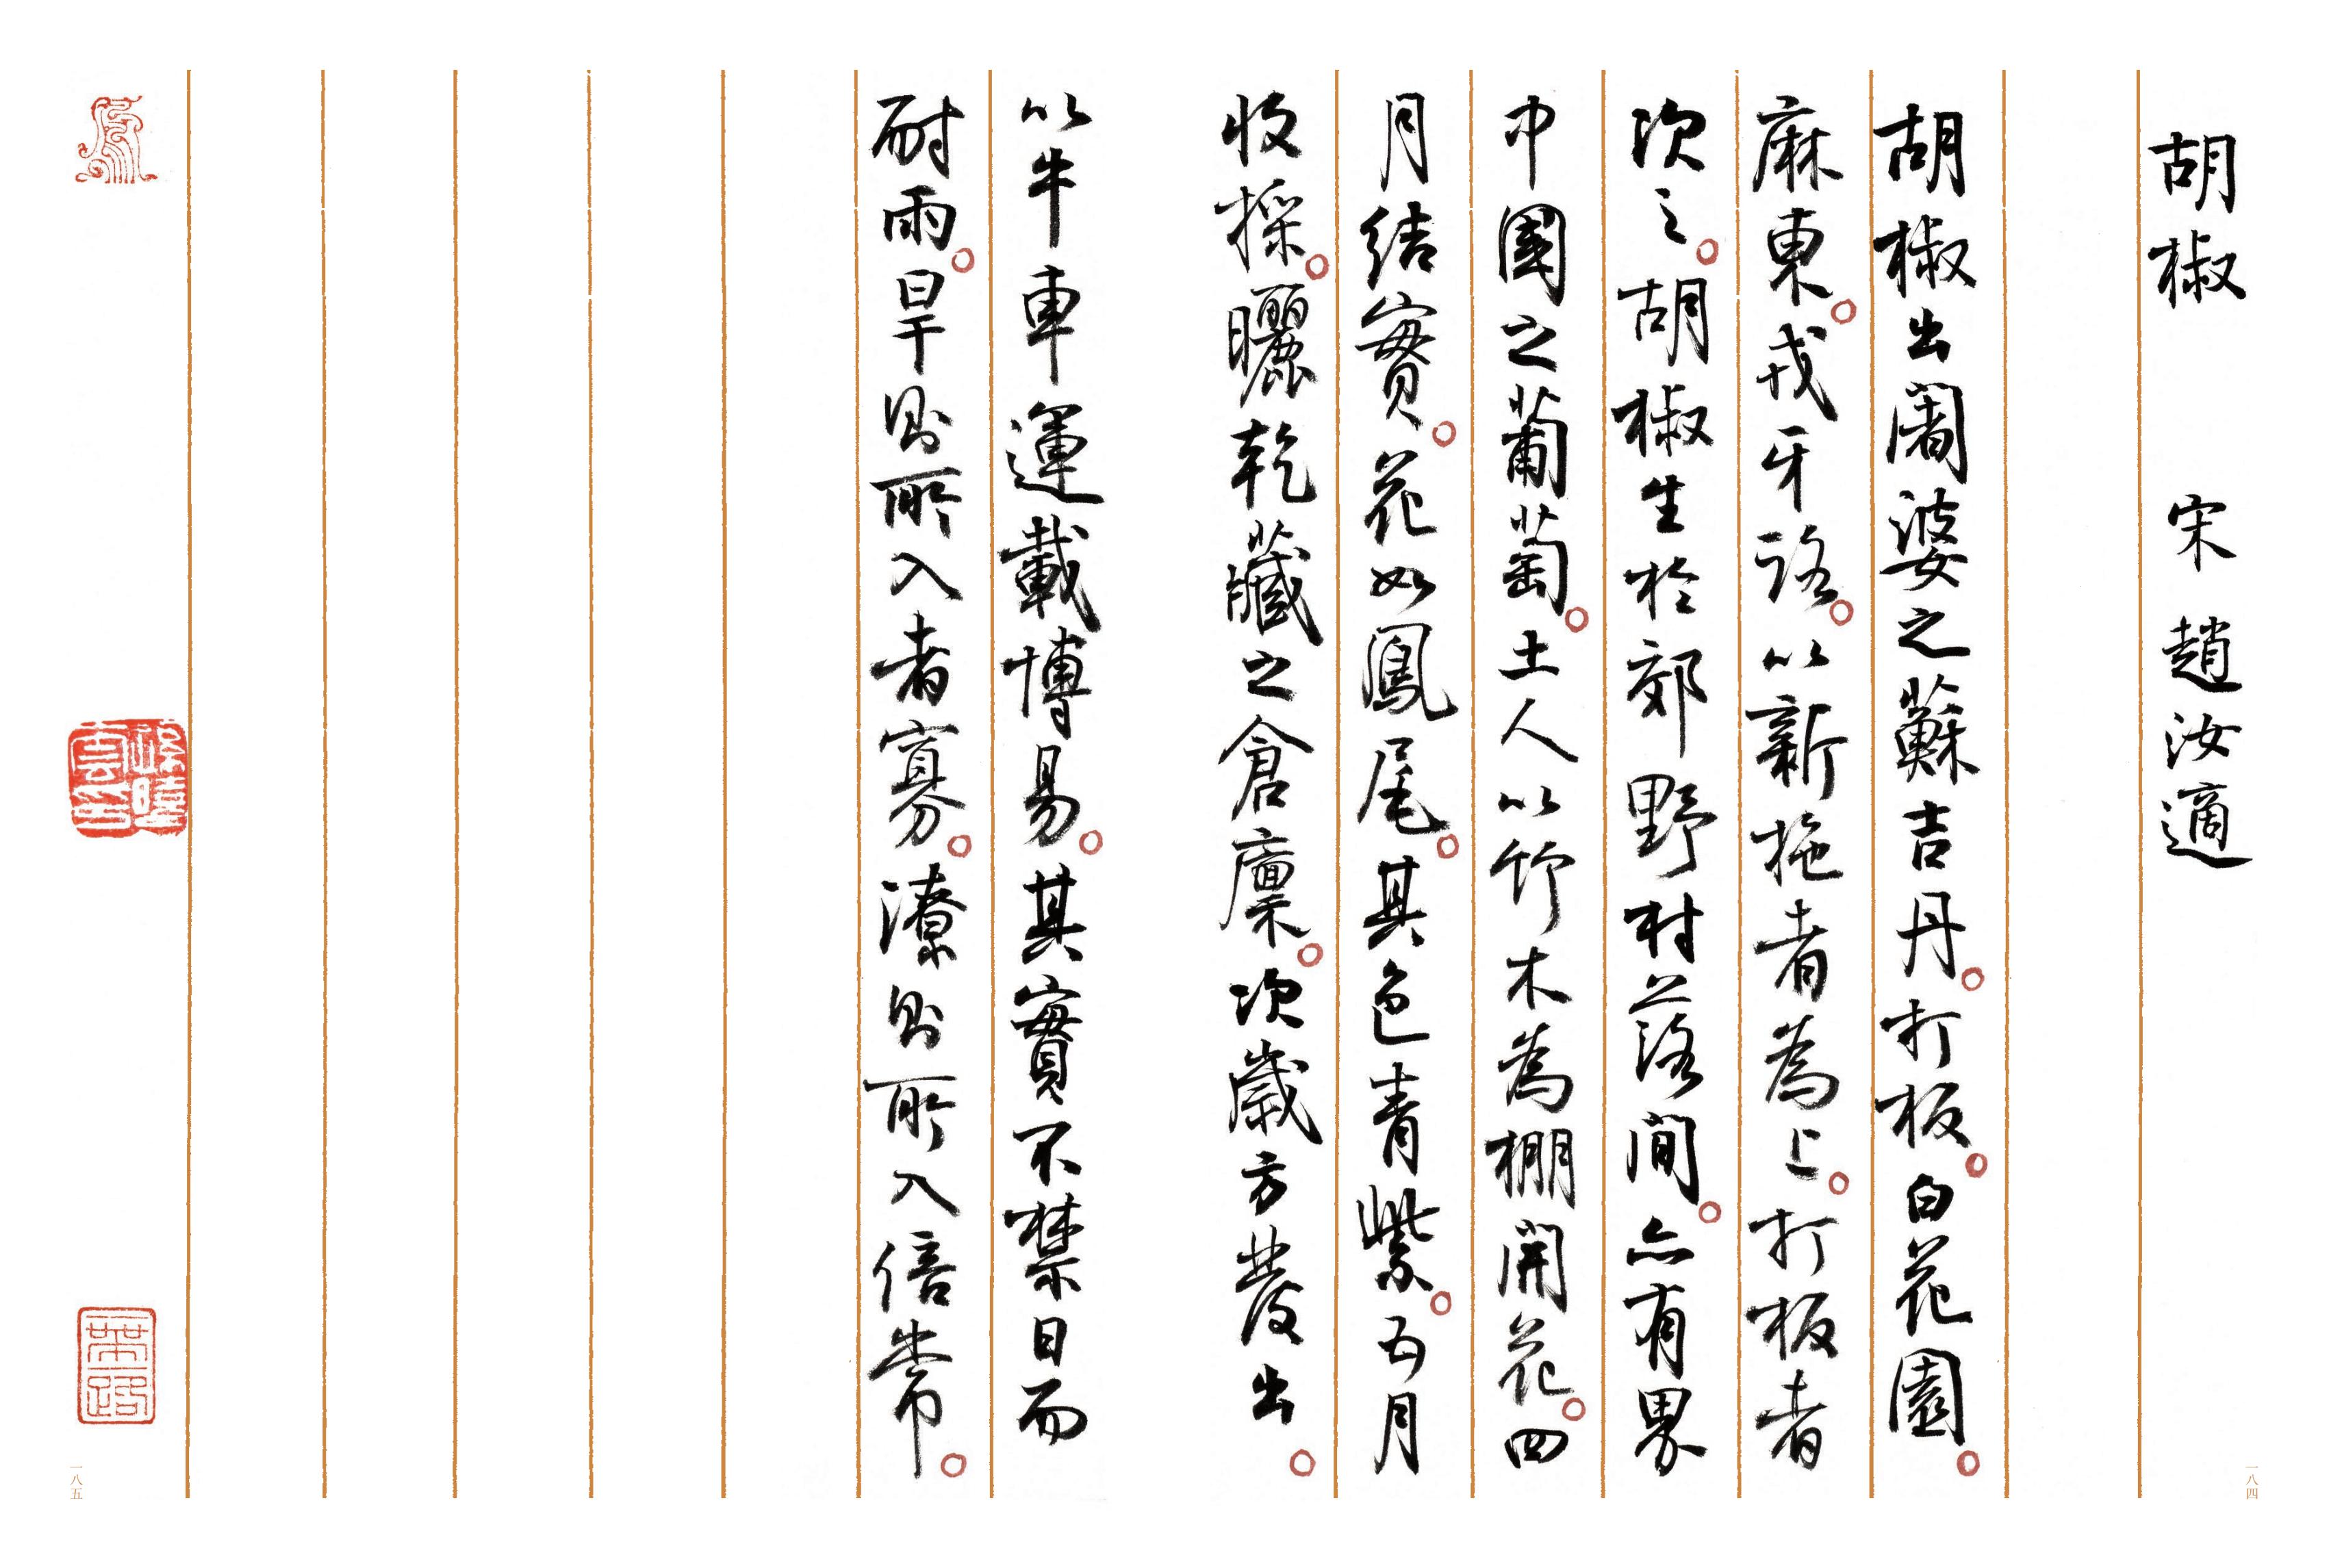 胡椒 宋 趙汝適
胡椒出闍婆之蘇吉丹。打板。白花園。
麻東。戎牙路。以新拖者為上。打板者
次之。胡椒生於郊野村落間。亦有界
中園之葡萄。土人以竹木為棚開花。四
月結實。花如鳳尾。其色青紫。五月
收採。曬乾藏之倉廩。次歲方發出。
以牛車運載博易。其實不禁日而
耐雨。旱則所入者寡。潦則所入倍常。
一八四
一八五